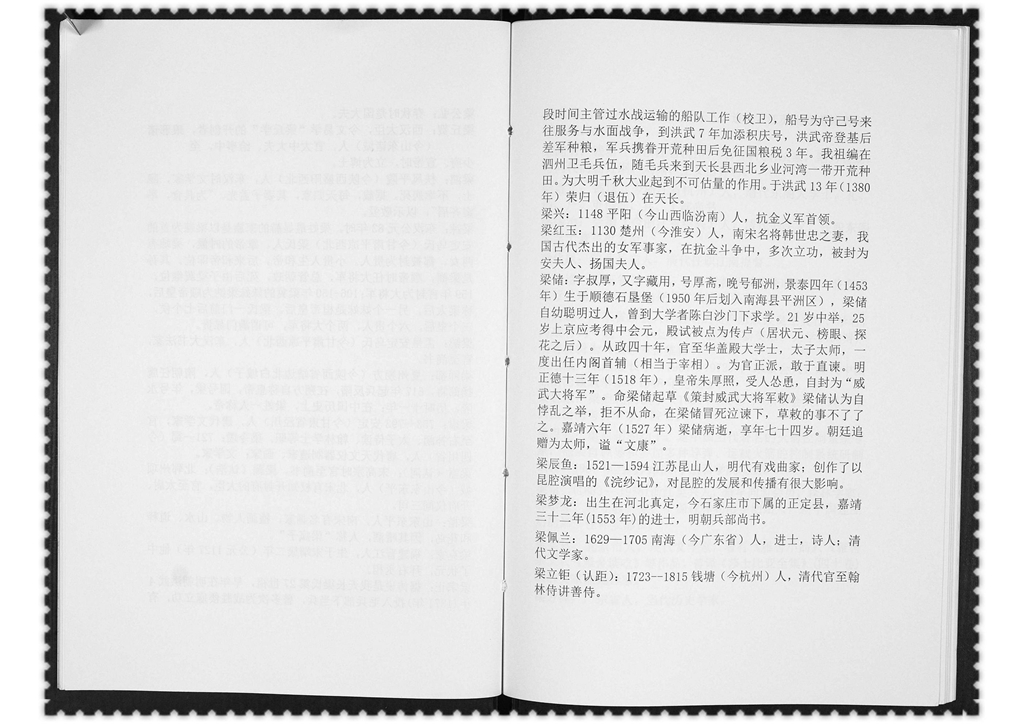 段时间主管过水战运输的船队工作（校卫），船号为守己号来
往服务与水面战争，到洪武 7 年加添积庆号，洪武帝登基后
差军种粮，军兵携眷开荒种田后免征国粮税 3 年。我祖编在
泗州卫毛兵伍，随毛兵来到天长县西北乡业河湾一带开荒种
田。为大明千秋大业起到不可估量的作用。于洪武 13 年（1380
年）荣归（退伍）在天长。
梁兴：1148 平阳（今山西临汾南）人，抗金义军首领。
梁红玉：1130 楚州（今淮安）人，南宋名将韩世忠之妻，我
国古代杰出的女军事家，在抗金斗争中，多次立功，被封为
安夫人、扬国夫人。
梁储：字叔厚，又字藏用，号厚斋，晚号郁洲，景泰四年（1453
年）生于顺德石垦堡（1950 年后划入南海县平洲区），梁储
自幼聪明过人，曾到大学者陈白沙门下求学。21 岁中举，25
岁上京应考得中会元，殿试被点为传卢（居状元、榜眼、探
花之后）。从政四十年，官至华盖殿大学士，太子太师，一
度出任内阁首辅（相当于宰相）。为官正派，敢于直谏。明
正德十三年（1518 年），皇帝朱厚照，受人怂恿，自封为“威
武大将军”。命梁储起草《策封威武大将军敕》梁储认为自
悖乱之举，拒不从命，在梁储冒死泣谏下，草敕的事不了了
之。嘉靖六年（1527 年）梁储病逝，享年七十四岁。朝廷追
赠为太师，谥“文康”。
梁辰鱼：1521—1594 江苏昆山人，明代有戏曲家；创作了以
昆腔演唱的《浣纱记》，对昆腔的发展和传播有很大影响。
梁梦龙：出生在河北真定，今石家庄市下属的正定县，嘉靖
三十二年(1553 年)的进士，明朝兵部尚书。
梁佩兰：1629—1705 南海（今广东省）人，进士，诗人；清
代文学家。
梁立钜（认距）；1723--1815 钱塘（今杭州）人，清代官至翰
林侍讲善侍。